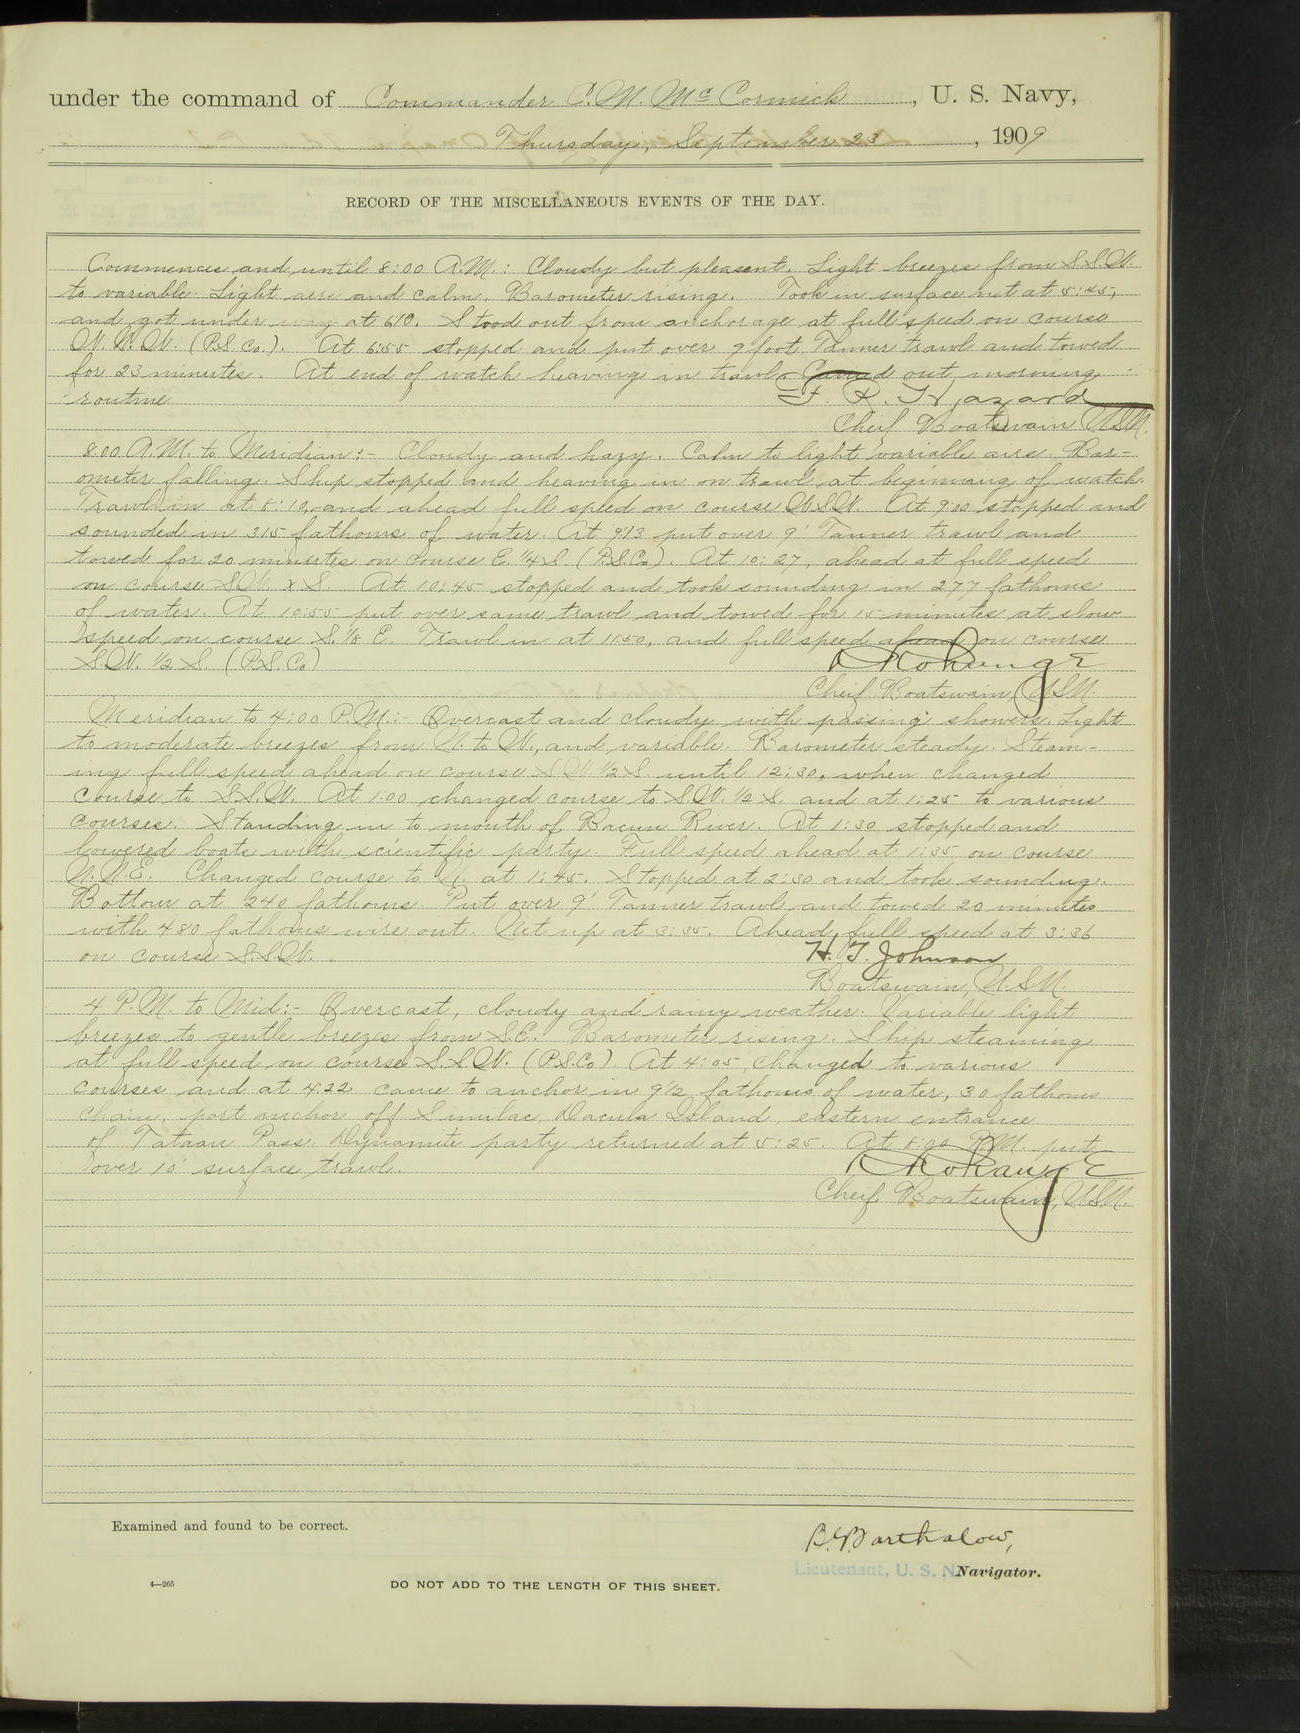 under the command of Commander C. M. McCormick, U. S. Navy,
Thursday, September 23, 1909
RECORD OF THE MISCELLANEOUS EVENTS OF THE DAY.
Commences and until 8:00 A.M.: Cloudy but pleasant. Light breezes from S.S.W.
to variable light airs and calm. Barometer rising. Took in surface net at 5:45,
and got under way at 6:10. Stood out from anchorage at full speed on course
(P.S.Co.). At 6:55 stopped and put over 9 foot Tanner trawl and towed
for 23 minutes. At end of watch heaving in trawl. Carried out morning
routine
Cheif Boatswain USN.
8:00 A.M. to Meridian:- Cloudy and hazy. Calm to light variable airs. Bar-
ometer falling. Ship stopped and heaving in on trawl at beginning of watch.
Trawl in at and ahead full speed on course At 9:00 stopped and
sounded in 315 fathoms of water. At 9:13 put over 9' Tanner trawl and
towed for 20 minutes on course E. 1/4 S (P.S.Co.). At 10:27, ahead at full speed
on course S.W. x S. At 10:45 stopped and took sounding in 277 fathoms
of water. At 10:55 put over same trawl and towed for 15 minutes at slow
speed on course S. 1/8 E. Trawl in at 11:50, and full speed ahead on course
S.W. 1/2 S. (P.S.Co.)
Cheif Boatswain, USN.
Meridian to 4:00 P.M.:- Overcast and cloudy with passing showers. Light
to moderate breezes from N. to W., and variable. Barometer steady. Steam-
ing full speed ahead on course S.W. 1/2 S. until 12:30, when changed
course to S.S.W. At 1:00 changed course to S.W. 1/2 S. and at 1:25 to various
courses. Standing in to mouth of Bacun River. At 1:30 stopped and
lowered boats with scientific party. Full speed ahead at 1:35 on course
N.N.E. Changed course to N. at 1:45. Stopped at 2:30 and took sounding.
Bottom at 240 fathoms. Put over 9' Tanner trawl and towed 20 minutes
with 480 fathoms wire out. Net up at 3:35. Ahead full speed at 3:36
on course S.S.W.
H. T. Johnson
Boatswain, U.S.N.
4 P.M. to Mid:- Overcast, cloudy and rainy weather. Variable light
breezes to gentle breezes from S.E. Barometer rising. Ship steaming
at full speed on course S.S.W. (P.S.Co.) At 4:05, changed to various
courses and at 4:22 came to anchor in 9 1/2 fathoms of water, 30 fathoms
chain, port anchor off Simulac Dacula Island, eastern entrance
of Tataan Pass. Dynamite party returned at 5:25. At P.M. put
over 10' surface trawl.
Cheif Boatswain, USN.
Examined and found to be correct.
Barthalow,
Lieutenant, U. S. N. Navigator.
4—265
DO NOT ADD TO THE LENGTH OF THIS SHEET.